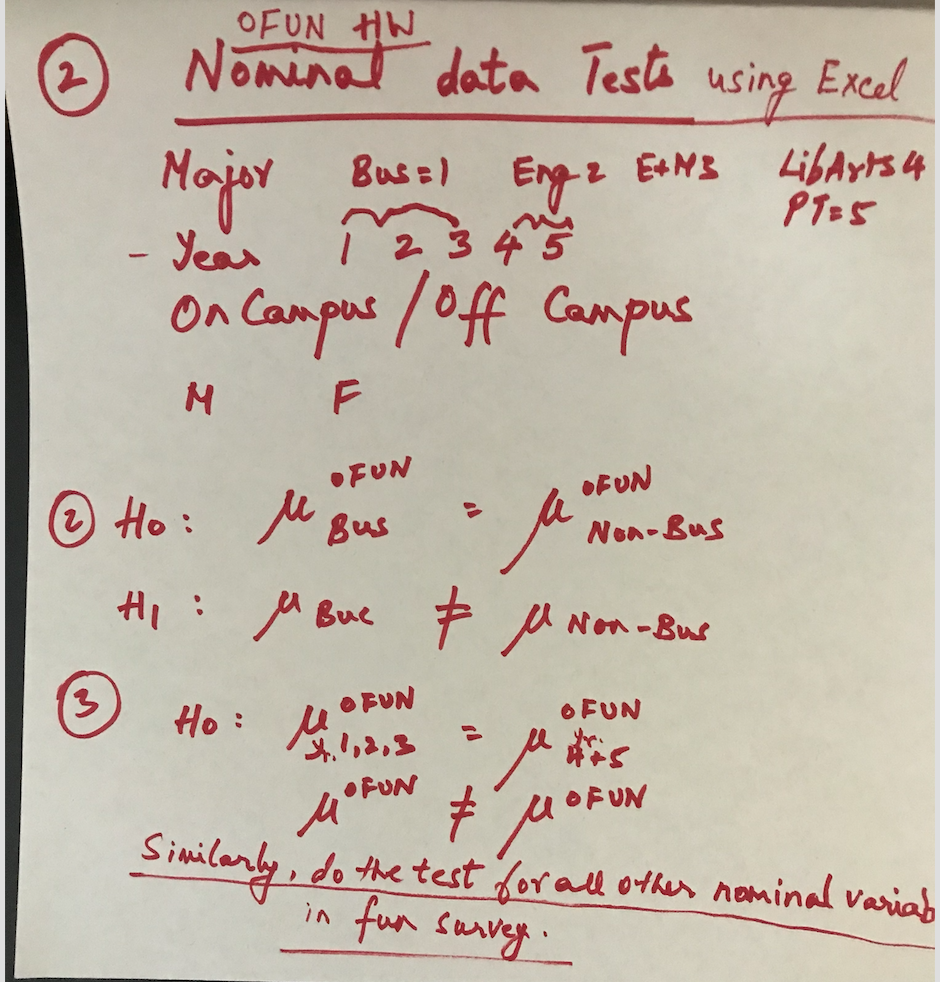 OFUN HW
② Nominal data Tests using Excel
Major Bus=1 Eng 2 E+M3 LibArts 4
PT=5
- Year 1 2 3 4 5
On Campus / Off Campus
M F
② Ho: μ OFUN Bus = μ OFUN Non-Bus
H1: μ Buc ≠ μ Non-Bus
③ Ho: μ OFUN Yr. 1,2,3 = μ OFUN yr. 4+5
μ OFUN ≠ μ OFUN
Similarly, do the test for all other nominal variab
in fun survey.